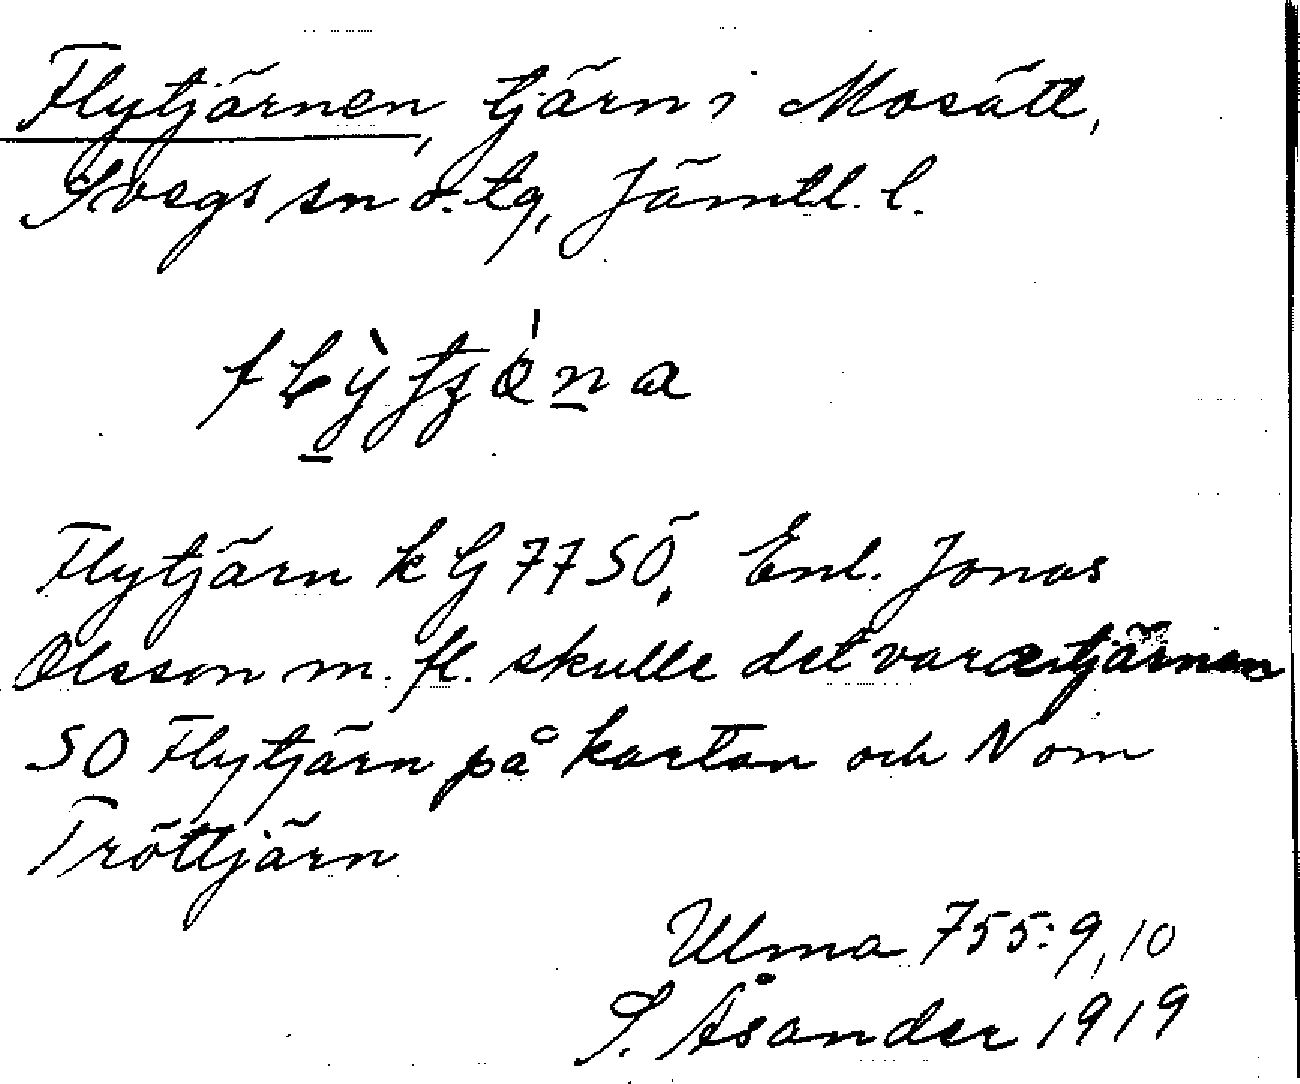 Flytjärnen, tjärn i Mosätt,
Svegs sn o. tg, Jämtl. l.
Flytjärn k G 77 SÖ. Enl. Jonas
Olsson m. fl. skulle det vara tjärnen
SO Flytjärn på kartan och N om
Tröttjärn
Ulma 755:9,10
S. Åsander 1919